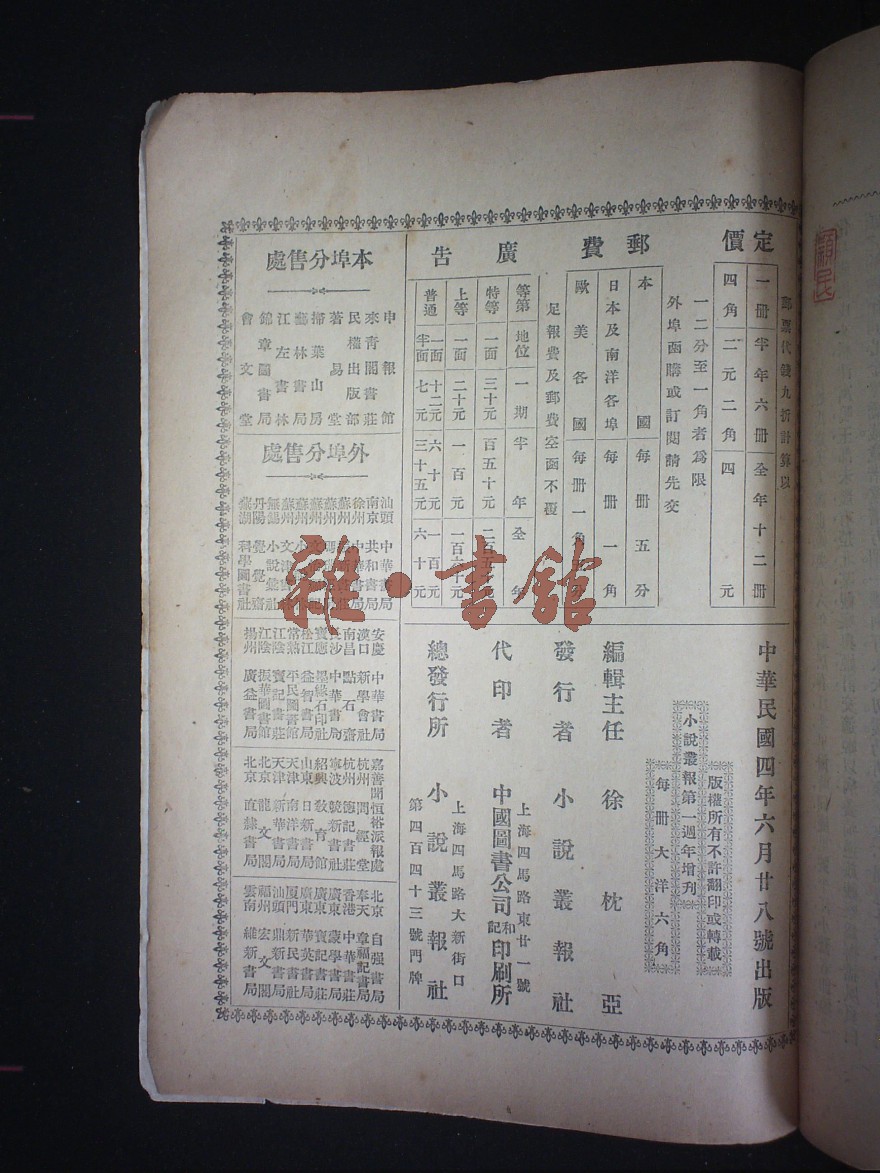 定價
郵票代錢九折計算以
一二分至一角者爲限
一冊 半年六冊 全年十二冊
四角 二元二角 四元
外埠函購或訂閱請先交
足報費及郵費空函不覆
郵費
本國 每冊五分
日本及南洋各埠 每冊一角
歐美各國 每冊一角
廣告
等第 地位 一期 半年 全年
特等 一面 三十元 百五十元
上等 一面 二十元 一百元 一百六十元
普通 一面 十二元 六十元 一百元
半面 七元 三十五元 六十元
中華民國四年六月廿八號出版
版權所有不許翻印或轉載
小說叢報第一週年增刊
每冊大洋六角
編輯主任 徐枕亞
發行者 小說叢報社
上海四馬路東廿一號
代印者 中國圖書公司和記印刷所
上海四馬路大新街口
總發行所 小說叢報社
第四百四十三號門牌
本埠分售處
申報館
來青閣書莊
民權出版部
著易堂
掃葉山房
藝林書局
江左書林
錦章圖書局
會文堂
外埠分售處
汕頭 中華書局
南京 共和書局
徐州
蘇州
蘇州
蘇州
蘇州
無錫 小說
丹陽 覺覺齋
蕪湖 科學圖書社
安慶 中華書局
漢口 新學會社
南昌 點石齋
長沙 中華書局
寶應 墨緣石印社
松江 益智書局
常熟 平民圖書館
江陰 寶記書莊
江陰 振華圖書館
揚州 廣益書局
嘉善 聞恒裕派報處
杭州 問經堂
杭州 德記書莊
寧波 競新書社
紹興 教育館
山東 日新書局
天津 南洋書局
天津 新華書局
北京 龍文閣
北京 直隸書局
北京 自強書局
奉天 章福記書局
香港 中華書莊
廣東 蒙學書局
廣東 寶記書莊
廣東 華英書局
厦門 新民書社
汕頭 鼎新書局
福州 宏文閣
雲南 維新書局
雜·書館